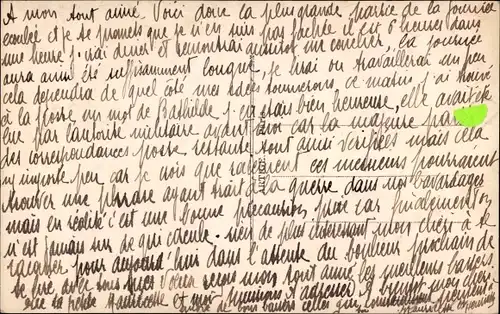 A mon tout aimé. Voici donc la plus grande partie de la journée
écoulée et je te promets que je n'en suis pas fachée il est 6 heures dans
une heure j'irai diner et remonterai aussitot me coucher, la journée
aura ainsi été suffisamment longue, je lirai ou travaillerai un peu
cela dependra de quel coté mes idées tourneront. ce matin j'ai trouvé
à la poste un mot de Bathilde j'en suis bien heureuse, elle avait été
lue par l'autorité militaire avant moi car la majeure
des correspondances poste restante sont ainsi verifiées mais cela
n'importe peu car je crois que rarement ces messieurs pourraient
trouver une phrase ayant trait à la guerre dans nos bavardages
mais en réalité c'est une bonne précaution prise car finalement on
n'est jamais sur de qui circule. rien de plus interessant mon cheri à te
raconter pour aujourd'hui dans l'attente du bonheur prochain de
te lire, avec tous mes voeux recois mon tout aimé les meilleurs baisers
de ta petite et moi
de bons baisers celles qui